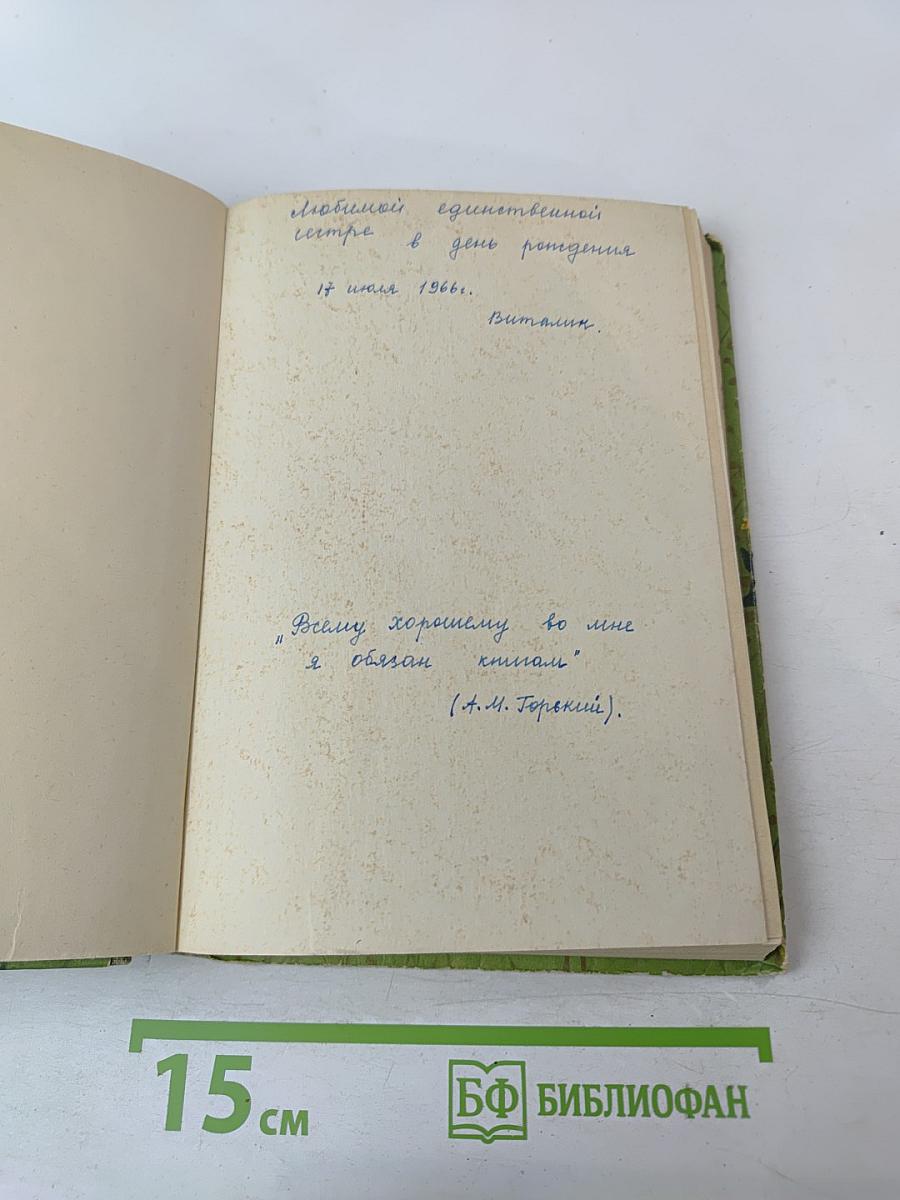 Любимой единственной
сестре в день рождения
17 июля 1966г.
Виталик.
„Всему хорошему во мне
я обязан книгам"
(А.М. Горький).
15 см
БФ БИБЛИОФАН